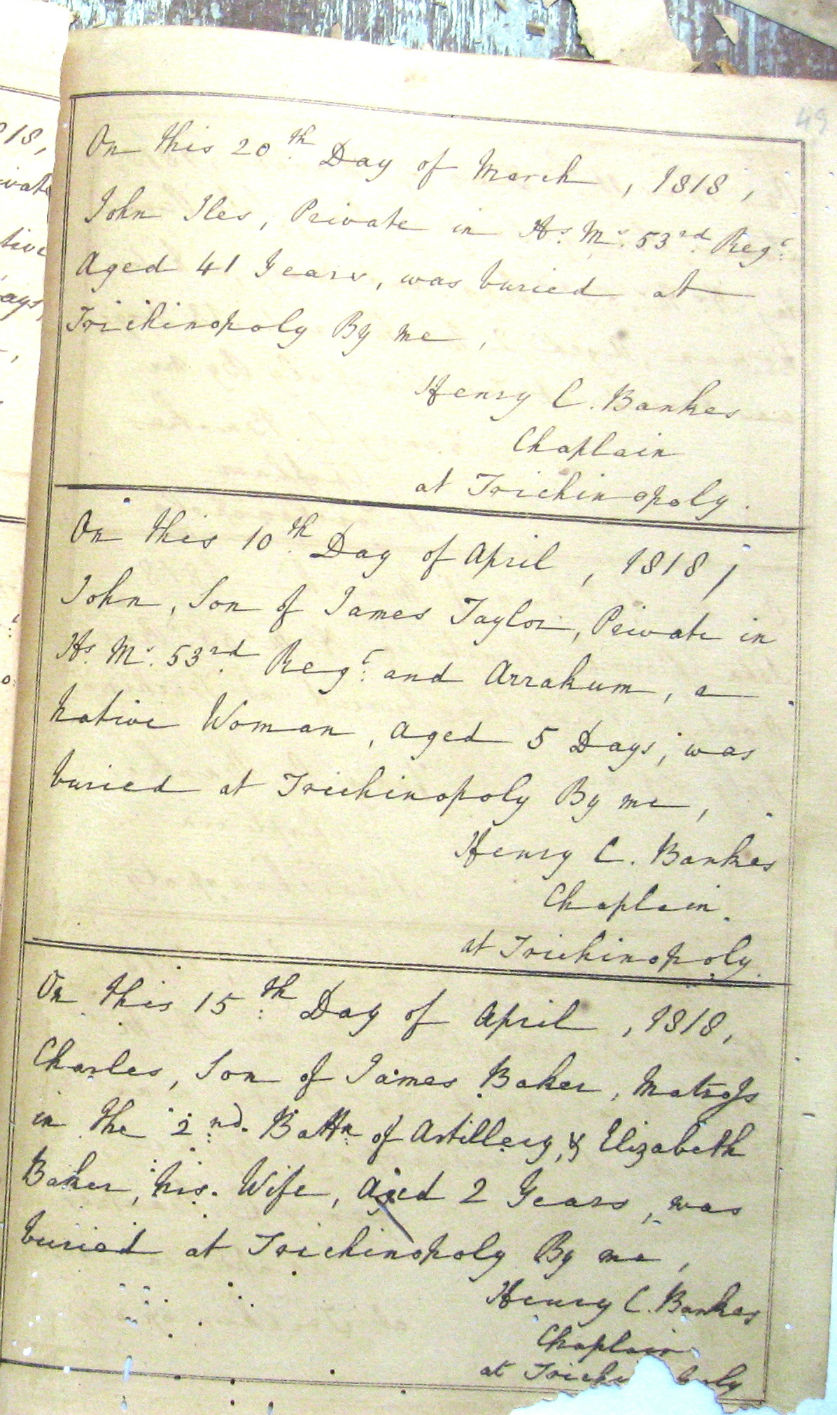 49
On this 20th Day of March, 1818,
John Iles, Private in Hs. Ms. 53rd Regt.
Aged 41 Years, was buried at
Trichinopoly By me,
Henry C. Bankes
Chaplain
at Trichinopoly.
On this 10th Day of April, 1818,
John, Son of James Taylor, Private in
Hs. Ms. 53rd Regt. and Arrakum, a
native Woman, aged 5 Days, was
buried at Trichinopoly By me,
Henry C. Bankes
Chaplain.
at Trichinopoly.
On this 15th Day of April, 1818,
Charles, Son of James Baker, Matross
in the 2nd. Battn of Artillery, & Elizabeth
Baker, his Wife, Aged 2 Years, was
buried at Trichinopoly By me,
Henry C. Bankes
Chaplain
at